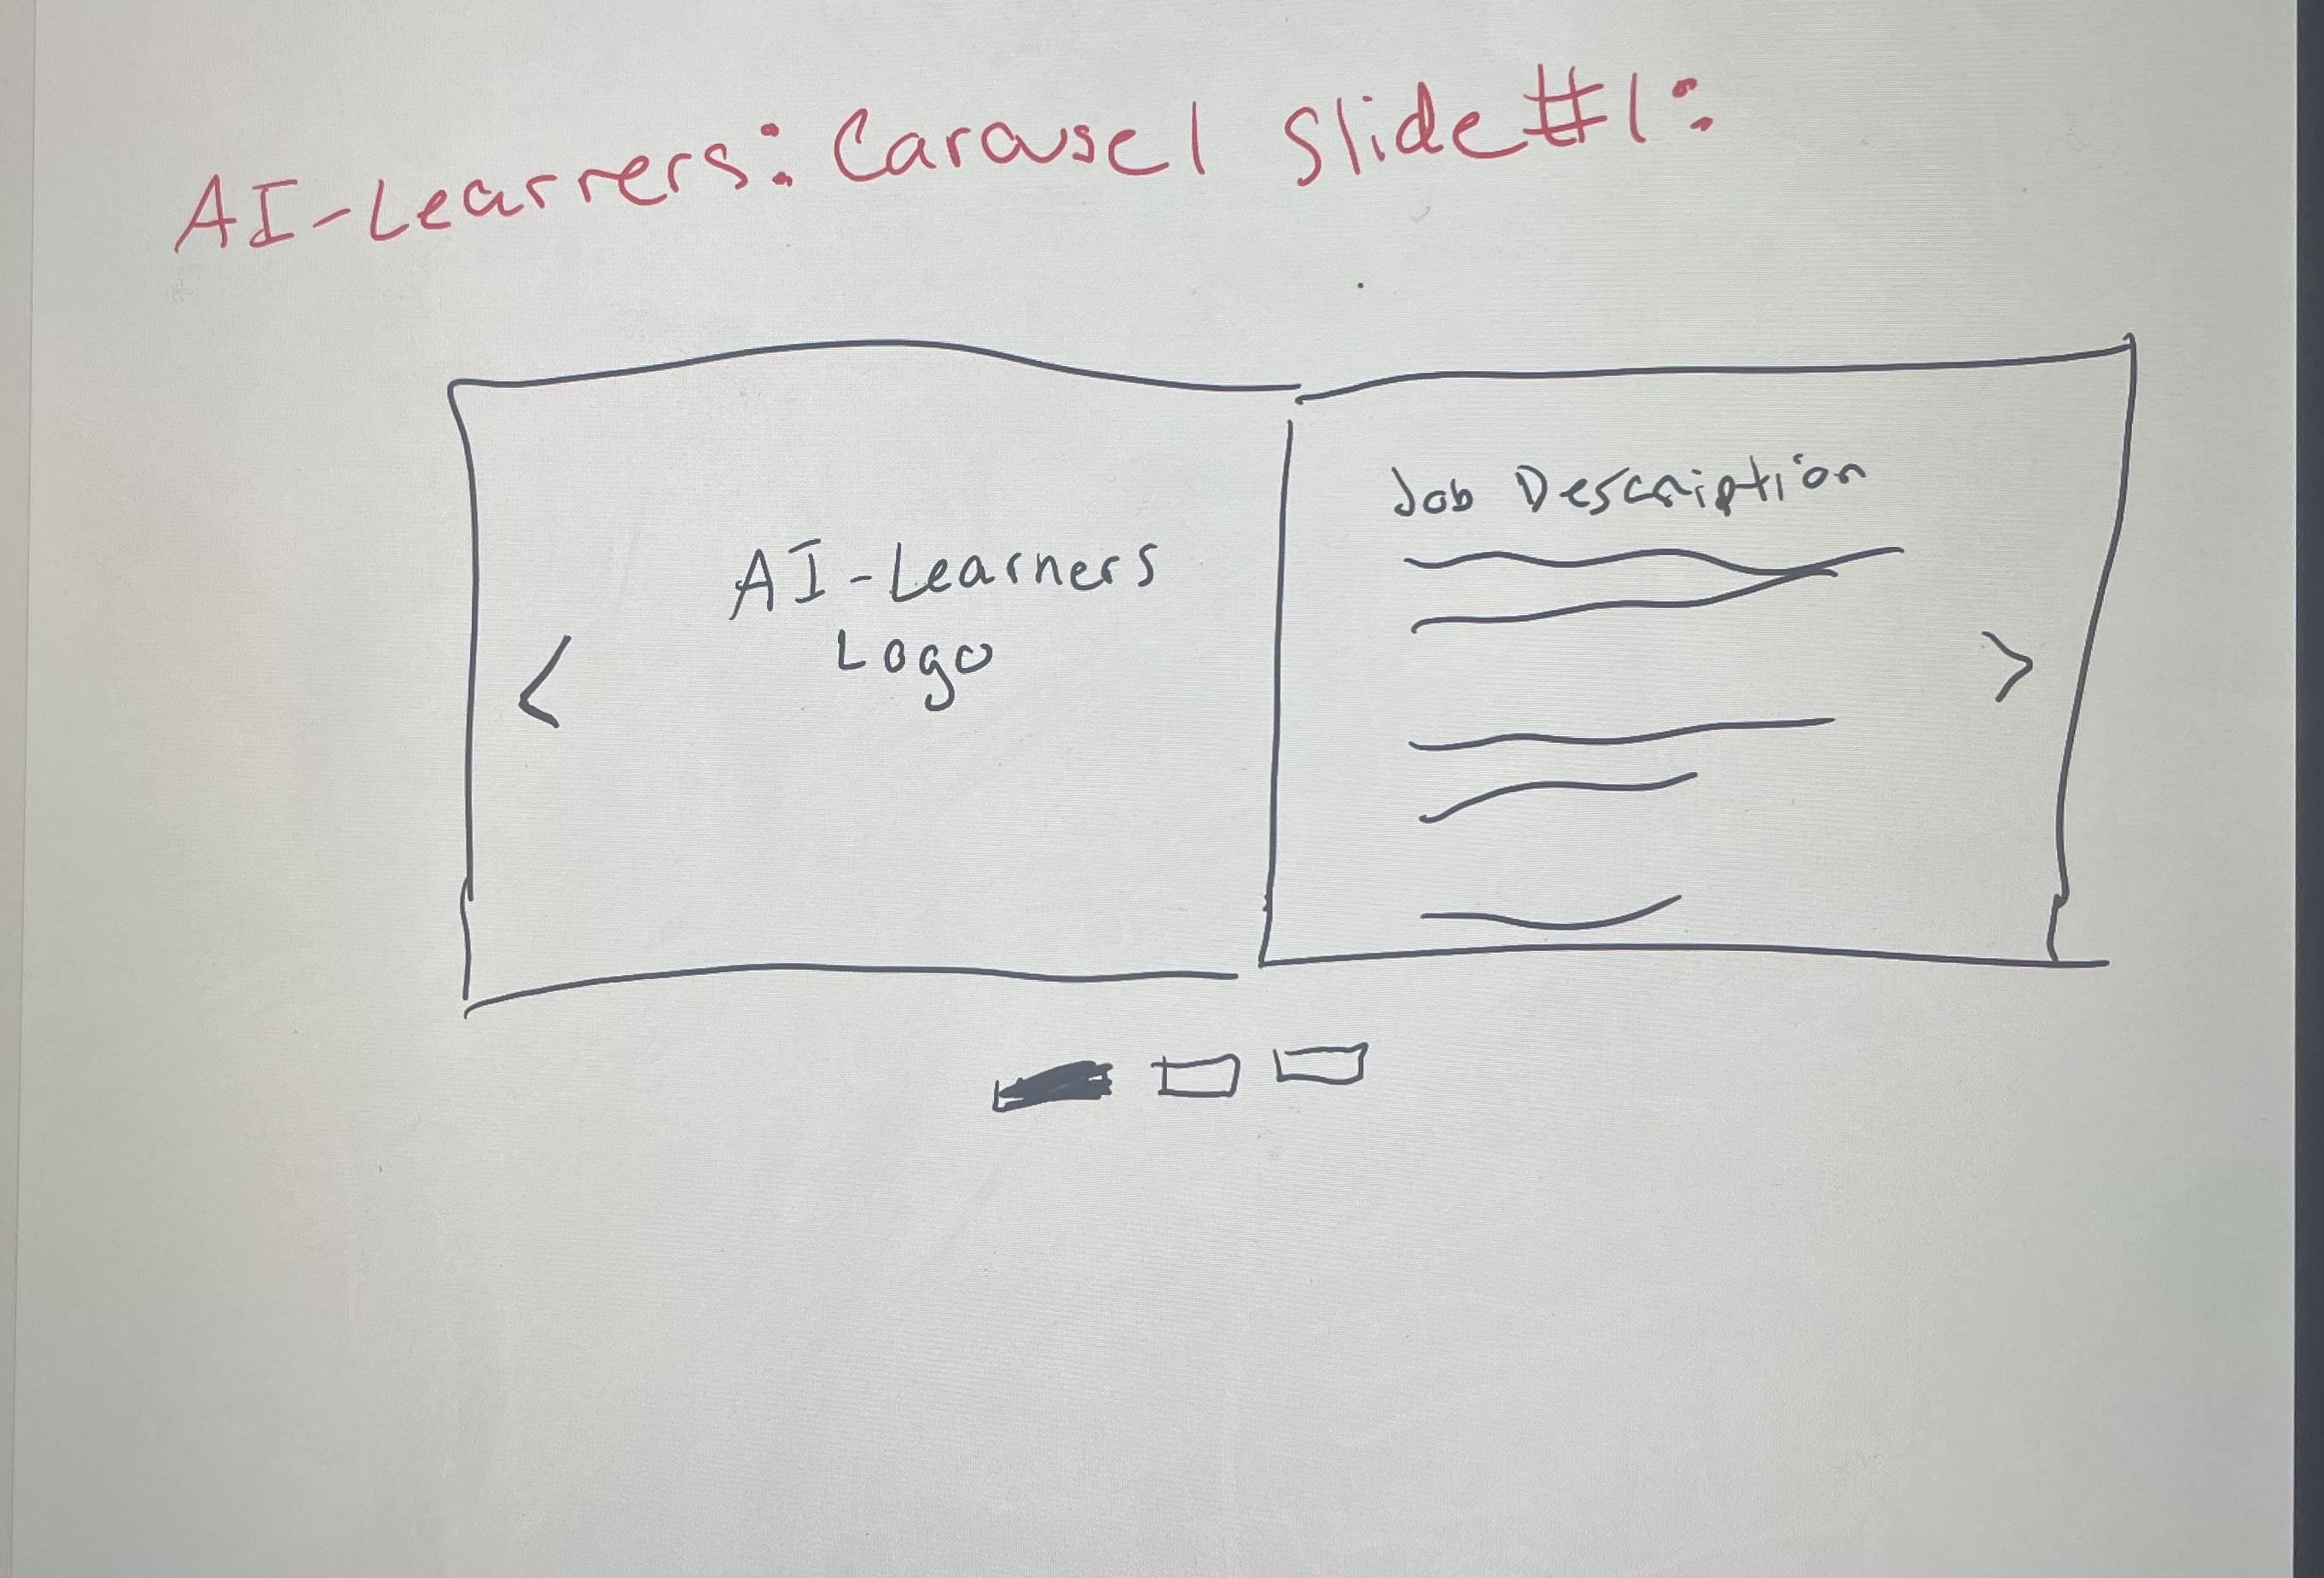 AI-Learners: Carousel Slide #1:
AI-Learners
Logo
Job Description
<
>